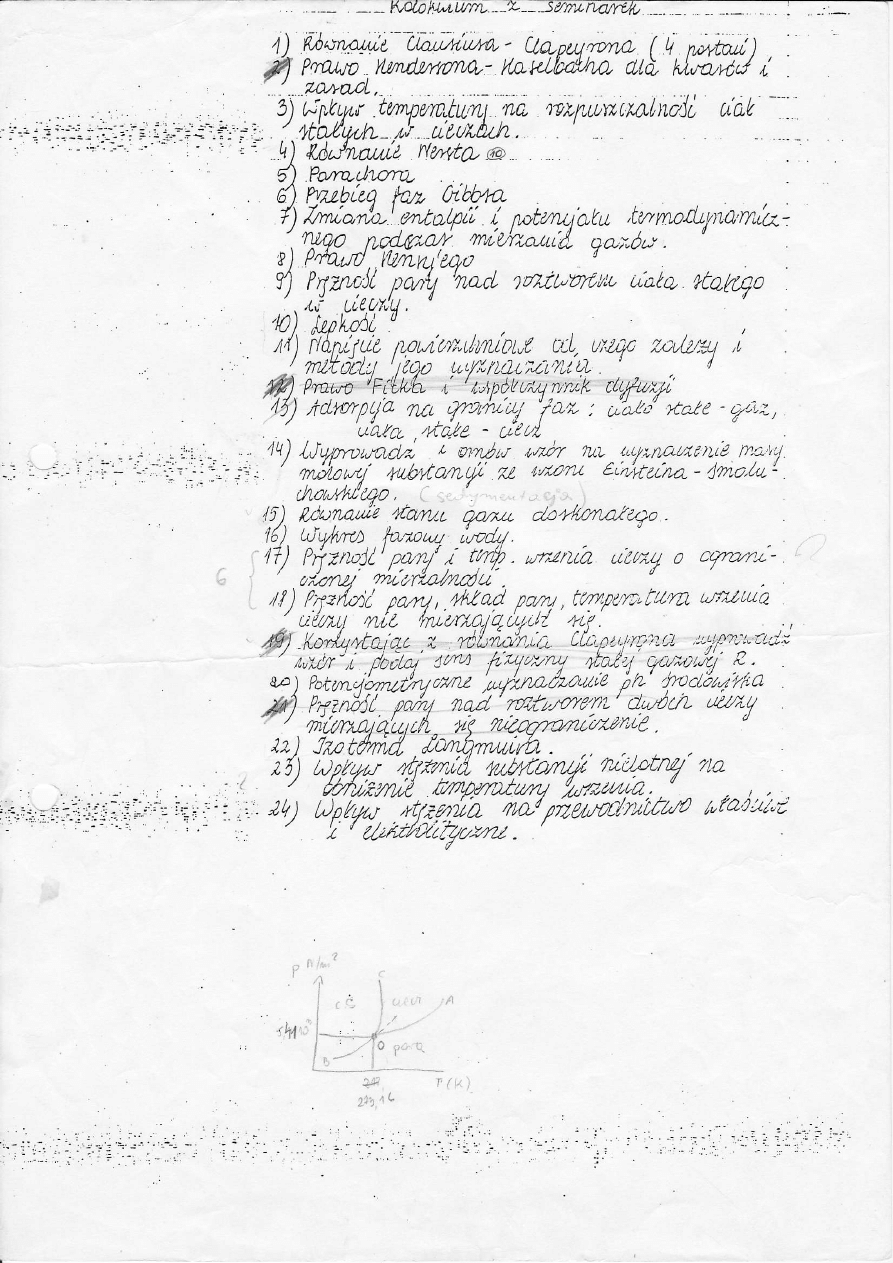 Kolokwium z seminarek
1) Równanie Clausiusa - Clapeyrona (4 postaci)
2) Prawo Hendersona - Haselbacha dla kwasów i
zasad.
3) Wpływ temperatury na rozpuszczalność ciał
stałych w cieczach.
4) Równanie Nersta 10
5) Parachora
6) Przebieg faz Gibbsa
7) Zmiana entalpii i potencjału termodynamicz-
nego podczas mieszania gazów.
8) Prawo Henry'ego
9) Prężność pary nad roztworem ciała stałego
w cieczy.
10) Lepkość
11) Napięcie powierzchniowe od czego zależy i
metody jego wyznaczania.
12) Prawo Ficka i współczynnik dyfuzji
13) Adsorpcja na granicy faz: ciało stałe - gaz,
ciała stałe - ciecz
14) Wyprowadź i omów wzór na wyznaczenie masy
molowej substancji ze wzoru Einsteina - Smolu-
chowskiego. (sedymentacja)
15) Równanie stanu gazu doskonałego.
16) Wykres fazowy wody.
17) Prężność pary i temp. wrzenia cieczy o ograni-
czonej mieszalności.
6
18) Prężność pary, skład pary, temperatura wrzenia
cieczy nie mieszających się.
19) Korzystając z równania Clapeyrona wyprowadź
wzór i podaj sens fizyczny stałej gazowej R.
20) Potencjometryczne wyznaczanie ph środowiska
21) Prężność pary nad roztworem dwóch cieczy
mieszających się nieograniczenie.
22) Izoterma Langmuira.
23) Wpływ stężenia substancji nielotnej na
obniżenie temperatury wrzenia.
24) Wpływ stężenia na przewodnictwo właściwe
i elektrolityczne.
p N/m²
C
ciecz A
O para
B
T(K)
273,16